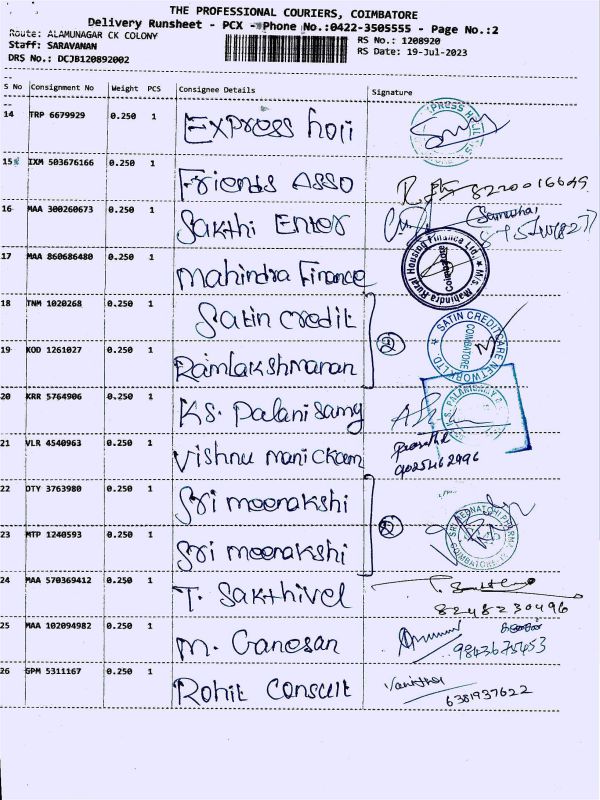 THE PROFESSIONAL COURIERS, COIMBATORE
Delivery Runsheet - PCX - Phone No.:0422-3505555 - Page No.:2
Route: ALAMUNAGAR CK COLONY
RS No.: 1208920
Staff: SARAVANAN
RS Date: 19-Jul-2023
DRS No.: DCJB120892002
S No Consignment No Weight PCS Consignee Details Signature
14 TRP 6679929 0.250 1 Express holi
15 IXM 503676166 0.250 1 Friends Asso
16 MAA 300260673 0.250 1 Sakthi Enter
17 MAA 860686480 0.250 1 Mahindra Finance
M/s. Mahindra Rural Housing Finance Ltd.
Coimbatore
18 TNM 1020268 0.250 1 Satin Credit
2
SATIN CREDITCARE NETWORK LTD.
COIMBATORE
19 KOD 1261027 0.250 1 Ramlakshmanan
20 KRR 5764906 0.250 1 KS. Palanisamy
21 VLR 4540963 0.250 1 Vishnu manickam
9025462996
22 DTY 3763980 0.250 1 Sri meenakshi
2
23 MTP 1240593 0.250 1 Sri meenakshi
24 MAA 570369412 0.250 1 T. Sakthivel
8248230496
25 MAA 102094982 0.250 1 M. Ganesan
9843675453
26 GPM 5311167 0.250 1 Rohit Consult
6381937622